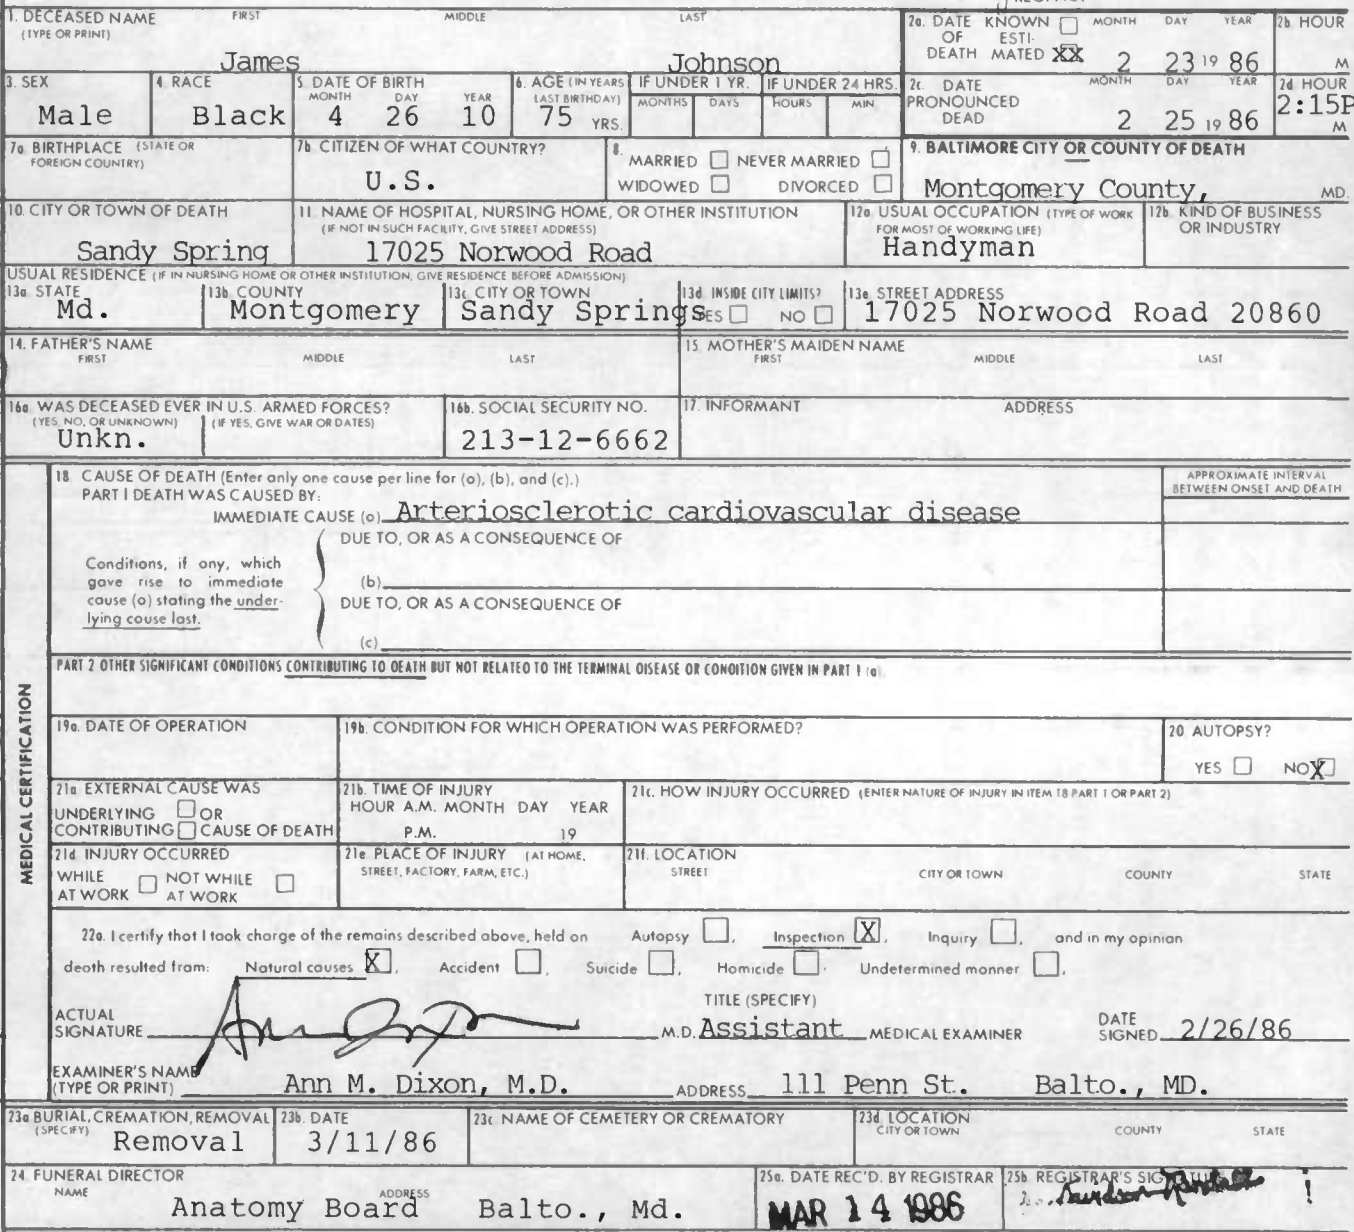 1. DECEASED NAME FIRST MIDDLE LAST
(TYPE OR PRINT)
James Johnson
2a. DATE OF DEATH KNOWN ☐ ESTIMATED XX MONTH DAY YEAR
2 23 19 86
2b. HOUR
M
3. SEX
Male
4. RACE
Black
5. DATE OF BIRTH
MONTH DAY YEAR
4 26 10
6. AGE (IN YEARS LAST BIRTHDAY)
75 YRS.
IF UNDER 1 YR. IF UNDER 24 HRS.
MONTHS DAYS HOURS MIN.
2c. DATE PRONOUNCED DEAD MONTH DAY YEAR
2 25 19 86
2d HOUR
2:15P
M
7a. BIRTHPLACE (STATE OR FOREIGN COUNTRY)
7b. CITIZEN OF WHAT COUNTRY?
U.S.
8. MARRIED ☐ NEVER MARRIED ☐
WIDOWED ☐ DIVORCED ☐
9. BALTIMORE CITY OR COUNTY OF DEATH
Montgomery County, MD.
10. CITY OR TOWN OF DEATH
Sandy Spring
11. NAME OF HOSPITAL, NURSING HOME, OR OTHER INSTITUTION
(IF NOT IN SUCH FACILITY, GIVE STREET ADDRESS)
17025 Norwood Road
12a. USUAL OCCUPATION (TYPE OF WORK FOR MOST OF WORKING LIFE)
Handyman
12b. KIND OF BUSINESS OR INDUSTRY
USUAL RESIDENCE (IF IN NURSING HOME OR OTHER INSTITUTION, GIVE RESIDENCE BEFORE ADMISSION)
13a. STATE
Md.
13b. COUNTY
Montgomery
13c. CITY OR TOWN
Sandy Springs
13d. INSIDE CITY LIMITS?
YES ☐ NO ☐
13e. STREET ADDRESS
17025 Norwood Road 20860
14. FATHER'S NAME
FIRST MIDDLE LAST
15. MOTHER'S MAIDEN NAME
FIRST MIDDLE LAST
16a. WAS DECEASED EVER IN U.S. ARMED FORCES?
(YES, NO, OR UNKNOWN) (IF YES, GIVE WAR OR DATES)
Unkn.
16b. SOCIAL SECURITY NO.
213-12-6662
17. INFORMANT ADDRESS
MEDICAL CERTIFICATION
18. CAUSE OF DEATH (Enter only one cause per line for (a), (b), and (c).)
PART I DEATH WAS CAUSED BY:
IMMEDIATE CAUSE (a) Arteriosclerotic cardiovascular disease
APPROXIMATE INTERVAL
BETWEEN ONSET AND DEATH
DUE TO, OR AS A CONSEQUENCE OF
Conditions, if any, which
gave rise to immediate
cause (a) stating the under-
lying cause last.
(b)
DUE TO, OR AS A CONSEQUENCE OF
(c)
PART 2 OTHER SIGNIFICANT CONDITIONS CONTRIBUTING TO DEATH BUT NOT RELATED TO THE TERMINAL DISEASE OR CONDITION GIVEN IN PART 1 (a)
19a. DATE OF OPERATION
19b. CONDITION FOR WHICH OPERATION WAS PERFORMED?
20. AUTOPSY?
YES ☐ NO X
21a EXTERNAL CAUSE WAS
UNDERLYING ☐ OR
CONTRIBUTING ☐ CAUSE OF DEATH
21b. TIME OF INJURY
HOUR A.M. MONTH DAY YEAR
P.M. 19
21c. HOW INJURY OCCURRED (ENTER NATURE OF INJURY IN ITEM 18 PART 1 OR PART 2)
21d INJURY OCCURRED
WHILE AT WORK ☐ NOT WHILE AT WORK ☐
21e PLACE OF INJURY (AT HOME,
STREET, FACTORY, FARM, ETC.)
21f. LOCATION
STREET CITY OR TOWN COUNTY STATE
22a. I certify that I took charge of the remains described above, held on Autopsy ☐, Inspection X, Inquiry ☐, and in my opinion
death resulted from: Natural causes X, Accident ☐, Suicide ☐, Homicide ☐. Undetermined manner ☐.
ACTUAL SIGNATURE M.D.
TITLE (SPECIFY)
Assistant MEDICAL EXAMINER
DATE SIGNED 2/26/86
EXAMINER'S NAME
(TYPE OR PRINT) Ann M. Dixon, M.D. ADDRESS 111 Penn St. Balto., MD.
23a BURIAL, CREMATION, REMOVAL
(SPECIFY)
Removal
23b. DATE
3/11/86
23c. NAME OF CEMETERY OR CREMATORY
23d. LOCATION
CITY OR TOWN COUNTY STATE
24. FUNERAL DIRECTOR
NAME ADDRESS
Anatomy Board Balto., Md.
25a. DATE REC'D. BY REGISTRAR
MAR 14 1986
25b. REGISTRAR'S